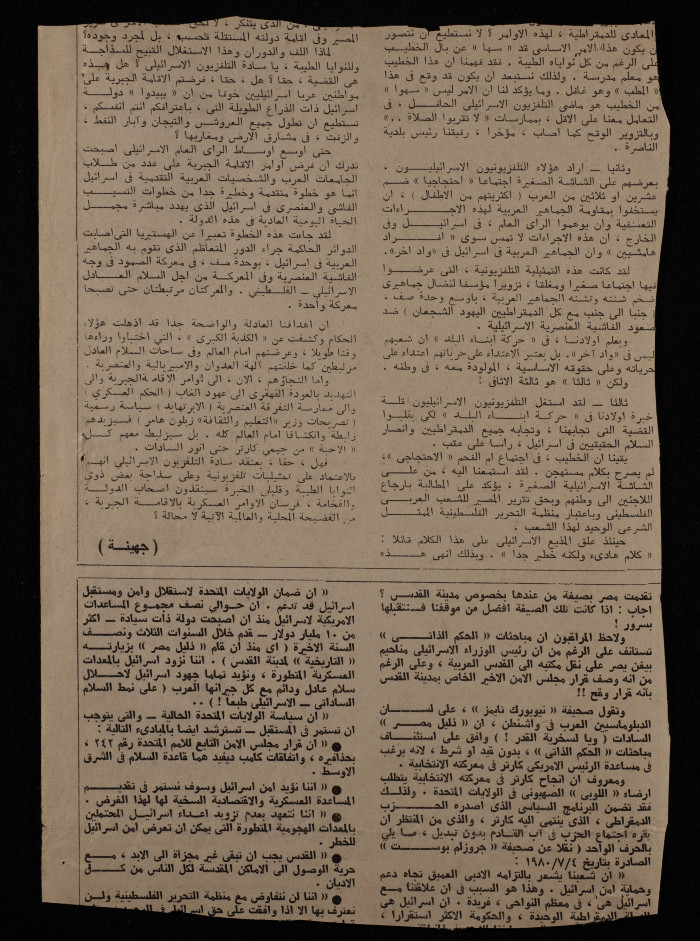 المعادي للدمقراطية ، لهذه الاوامر ؟ لا نستطيع ان نتصور
ان يكون هذا الامر الاساسي قد « سها » عن بال الخطيب
على الرغم من كل نواياه الطيبة . فقد فهمنا ان هذا الخطيب
هو معلم مدرسة . ولذلك نستبعد ان يكون قد وقع في هذا
« المطب » وهو غافل . ومما يؤكد لنا ان الامر ليس « سهوا »
من الخطيب هو ماضي التلفزيون الاسرائيلي الحافل ، في
التعامل معنا على الاقل ، بممارسات « لا تقربوا الصلاة .. »
وبالتزوير الوقح كما اصاب ، مؤخرا ، رفيقنا رئيس بلدية
الناصرة .
وثانيا — اراد هؤلاء التلفزيونيون الاسرائيليون .
بعرضهم على الشاشة الصغيرة اجتماعا « احتجاجيا » ضم
عشرين او ثلاثين من العرب ( اكثريتهم من الاطفال ) ، ان
يستخفوا بمقاومة الجماهير العربية لهذه الاجراءات
التعسفية وان يوهموا الراى العام ، في اسرائيل وفي
الخارج ، ان هذه الاجراءات لا تمس سوى « افراد
هامشيين » وان الجماهير العربية في اسرائيل في «واد آخر».
لقد كانت هذه التمثيلية التلفزيونية ، التى عرضوا
فيها اجتماعا صغيرا ومغلقا ، تزويرا مؤسفا لنضال جماهيرى
ضخم شنته وتشنه الجماهير العربية ، باوسع وحدة صف ،
( جنبا الى جنب مع كل الدمقراطيين اليهود الشجعان ) ضد
صعود الفاشية العنصرية الاسرائيلية .
ويعلم اولادنا ، في « حركة ابناء البلد » ان شعبهم
ليس في «واد آخر». بل يعتبر الاعتداء على حرياتهم اعتداء على
حرياته وعلى حقوقه الاساسية ، المولودة معه ، في وطنه .
ولكن « ثالثا » هو ثالثة الاثافى :
ثالثا — لقد استغل التلفزيونيون الاسرائيليون قلة
خبرة اولادنا في « حركة ابناء البلد » لكى يقلبوا
القضية التى تجابهنا ، وتجابه جميع الدمقراطيين وانصار
السلام الحقيقيين في اسرائيل ، راسا على عقب .
يقينا ان الخطيب ، في اجتماع ام الفحم « الاحتجاجى »،
لم يصرح بكلام مستهجن . لقد استمعنا اليه ، من على
الشاشة الاسرائيلية الصغيرة ، يؤكد على المطالبة بارجاع
اللاجئين الى وطنهم وبحق تقرير المصير للشعب العربى
الفلسطينى وباعتبار منظمة التحرير الفلسطينية الممثل
الشرعى الوحيد لهذا الشعب .
حينئذ علق المذيع الاسرائيلى على هذا الكلام قائلا :
« كلام هادىء ولكنه خطير جدا » . وبذلك انهى هذه
المصير وفي اقامة دولته المستقلة فحسب ، بل لمجرد وجوده؟
لماذا اللف والدوران وهذا الاستغلال القبيح للسذاجة
وللنوايا الطيبة ، يا سادة التلفزيون الاسرائيلى ؟ هل هذه
هى القضية ، حقا ؟ هل ، حقا ، فرضتم الاقامة الجبرية على
مواطنين عربا اسرائيليين خوفا من ان « يبيدوا » دولة
اسرائيل ذات الذراع الطويلة التى ، باعترافكم انتم انفسكم ،
تستطيع ان تطول جميع العروش والتيجان وابار النفط ،
والزفت ، في مشارق الارض ومغاربها ؟
حتى اوسع اوساط الراى العام الاسرائيلى اصبحت
تدرك ان فرض اوامر الاقامة الجبرية على عدد من طلاب
الجامعات العرب والشخصيات العربية التقدمية في اسرائيل
انما هو خطوة متقدمة وخطيرة جدا من خطوات التسيب
الفاشى والعنصرى في اسرائيل الذى يهدد مباشرة مجمل
الحياة اليومية العادية في هذه الدولة .
لقد جاءت هذه الخطوة تعبيرا عن الهستيريا التى اصابت
الدوائر الحاكمة جراء الدور المتعاظم الذى تقوم به الجماهير
العربية في اسرائيل ، بوحدة صف ، في معركة الصمود في وجه
الفاشية العنصرية وفى المعركة من اجل السلام العادل
الاسرائيلى — الفلسطينى . والمعركتان مرتبطتان حتى تصبحا
معركة واحدة .
ان اهدافنا العادلة والواضحة جدا قد اذهلت هؤلاء
الحكام وكشفت عن « الكذبة الكبرى » ، التي اختباوا وراءها
وقتا طويلا ، وعرضتهم امام العالم وفى ساحات السلام العادل
مزلبطين كما خلقتهم آلهة العدوان والامبريالية والعنصرية .
واما التجاؤهم ، الان ، الى اوامر الاقامة الجبرية والى
التهديد بالعودة القهقرى الى عهود الغاب ( الحكم العسكرى )
والى ممارسة التفرقة العنصرية ( الابرتهايد ) سياسة رسمية
( تصريحات وزير «التعليم والثقافة» زبلون هامر ) فسيزيدهم
زلبطة وانكشافا امام العالم كله . بل سيزلبط معهم كل
« الاحبة » من جيمى كارتر حتى انور السادات .
فهل ، حقا ، يعتقد سادة التلفزيون الاسرائيلى انهم
بالاعتماد على تمثيليات تلفزيونية وعلى سذاجة بعض ذوى
النوايا الطيبة وقليلى الخبرة سينقذون اصحاب الدولة
والفخامة ، فرسان الاوامر العسكرية بالاقامة الجبرية ،
من الفضيحة المحلية والعالمية الآتية لا محالة ؟
( جهينة )
تقدمت مصر بصيغة من عندها بخصوص مدينة القدس ؟
اجاب : اذا كانت تلك الصيغة افضل من موقفنا فسنتقبلها
بسرور !
ولاحظ المراقبون ان مباحثات « الحكم الذاتى »
تستانف على الرغم من ان رئيس الوزراء الاسرائيلى مناحيم
بيغن يصر على نقل مكتبه الى القدس العربية ، وعلى الرغم
من انه وصف قرار مجلس الامن الاخير الخاص بمدينة القدس
بانه قرار وقح !!
وتقول صحيفة « نيويورك تايمز » ، على لسان
الدبلوماسيين العرب في واشنطن ، ان « ذليل مصر »
السادات ( ويا لسخرية القدر ! ) وافق على استئناف
مباحثات « الحكم الذاتى » ، بدون قيد او شرط ، لانه يرغب
في مساعدة الرئيس الامريكى كارتر في معركته الانتخابية .
ومعروف ان انجاح كارتر في معركته الانتخابية يتطلب
ارضاء « اللوبي » الصهيونى في الولايات المتحدة . ولذلك
فقد تضمن البرنامج السياسى الذى اصدره الحزب
الدمقراطى ، الذى ينتمى اليه كارتر ، والذى من المنتظر ان
يقره اجتماع الحزب في آب القادم بدون تبديل ، ما يلى
بالحرف الواحد ( نقلا عن صحيفة « جروزلم بوست »
الصادرة بتاريخ ١٩٨٠/٧/٤ :
« ان شعبينا يشعر بالتزامه الادبى العميق تجاه دعم
وحماية امن اسرائيل . وهذا هو السبب في ان علاقتنا مع
اسرائيل هى ، في معظم النواحى ، فريدة . ان اسرائيل هى
الدمقراطية الوحيدة ، والحكومة الاكثر استقرارا ،
« ان ضمان الولايات المتحدة لاستقلال وامن ومستقبل
اسرائيل قد تدعم . ان حوالي نصف مجموع المساعدات
الامريكية لاسرائيل منذ ان اصبحت دولة ذات سيادة — اكثر
من ١٠ مليار دولار — قدم خلال السنوات الثلاث ونصف
السنة الاخيرة ( اى منذ ان قام « ذليل مصر » بزيارته
« التاريخية » لمدينة القدس ) . اننا نزود اسرائيل بالمعدات
العسكرية المتطورة ، ونؤيد تماما جهود اسرائيل لاحلال
سلام عادل ودائم مع كل جيرانها العرب ( على نمط السلام
الساداتى — الاسرائيلى طبعا ! ) ..
« ان سياسة الولايات المتحدة الحالية — والتى يتوجب
ان تستمر في المستقبل — تسترشد ايضا بالمبادىء التالية :
● « ان قرار مجلس الامن التابع للامم المتحدة رقم ٢٤٢ ،
بحذافيره ، واتفاقات كامب ديفيد هما قاعدة السلام في الشرق
الاوسط .
● « اننا نؤيد امن اسرائيل وسوف نستمر في تقديم
المساعدة العسكرية والاقتصادية السخية لها لهذا الغرض .
● « اننا نتعهد بعدم تزويد اعداء اسرائيل المحتملين
بالمعدات الهجومية المتطورة التى يمكن ان تعرض امن اسرائيل
للخطر .
● « القدس يجب ان تبقى غير مجزاة الى الابد ، مع
حرية الوصول الى الاماكن المقدسة لكل الناس من كل
الاديان .
● « اننا لن نتفاوض مع منظمة التحرير الفلسطينية ولن
نعترف بها الا اذا وافقت على حق اسرائيل في الوجود